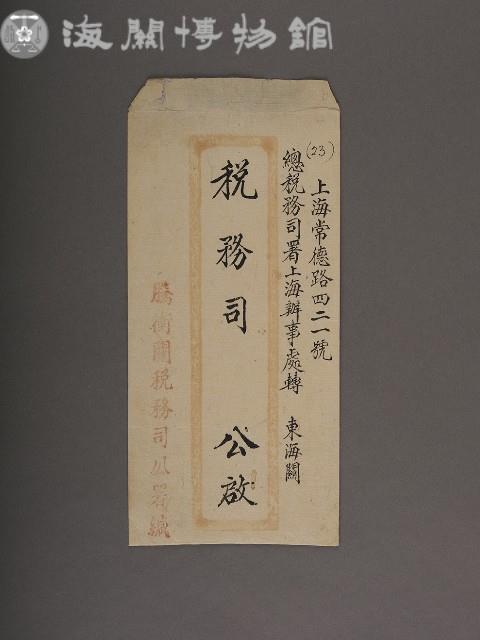 海關博物館
(23)
上海常德路四二一號
總稅務司署上海辦事處轉 東海關
稅務司 公啟
騰衝關稅務司公署緘